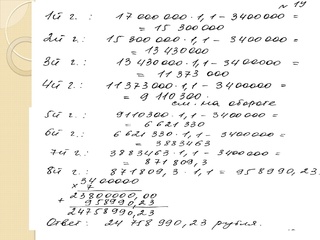 № 19
1й г.: 17 000 000 · 1,1 - 3400000 =
= 15 300 000
2й г.: 15 300 000 · 1,1 - 3400000 =
= 13 430000
3й г.: 13 430000 · 1,1 - 3400000 =
= 11 373 000
4й г.: 11373000 · 1,1 - 3400000 =
= 9 110 300.
см. на обороте
5й г.: 9110300 · 1,1 - 3400000 =
= 6621330
6й г.: 6 621 330 · 1,1 - 3400000 =
= 3883463
7й г.: 3883463 · 1,1 - 3400000 =
= 871809,3
8й г.: 871809,3 · 1,1 = 958990,23
3400000
× 7
23800000,00
+ 958990,23
24758990,23
Ответ: 24 758 990,23 рубля.